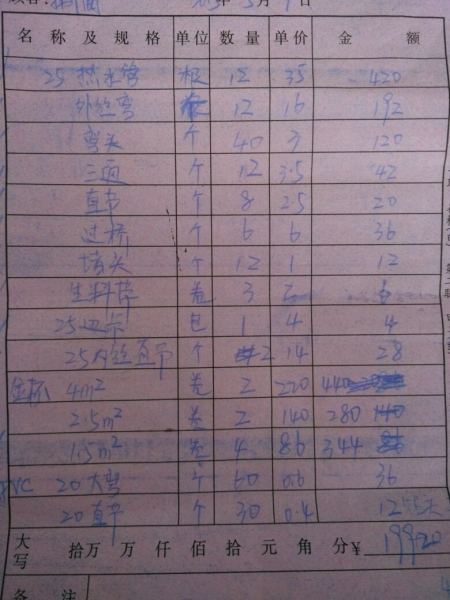 名 称 及 规 格 单位 数 量 单价 金 额
25 热水管 根 12 35 420
外丝弯 个 12 16 192
弯头 个 40 3 120
三通 个 12 3.5 42
直节 个 8 2.5 20
过桥 个 6 6 36
堵头 个 12 1 12
生料带 卷 3 2 6
25 卡 包 1 4 4
25内丝直节 个 2 14 28
金杯 4m² 卷 2 220 440
2.5m² 卷 2 140 280
1.5m² 卷 4 86 344
PVC 20大弯 个 60 0.6 36
20直节 个 30 0.4 12
大写 拾万 万 仟 佰 拾 元 角 分 ¥ 1992
备 注